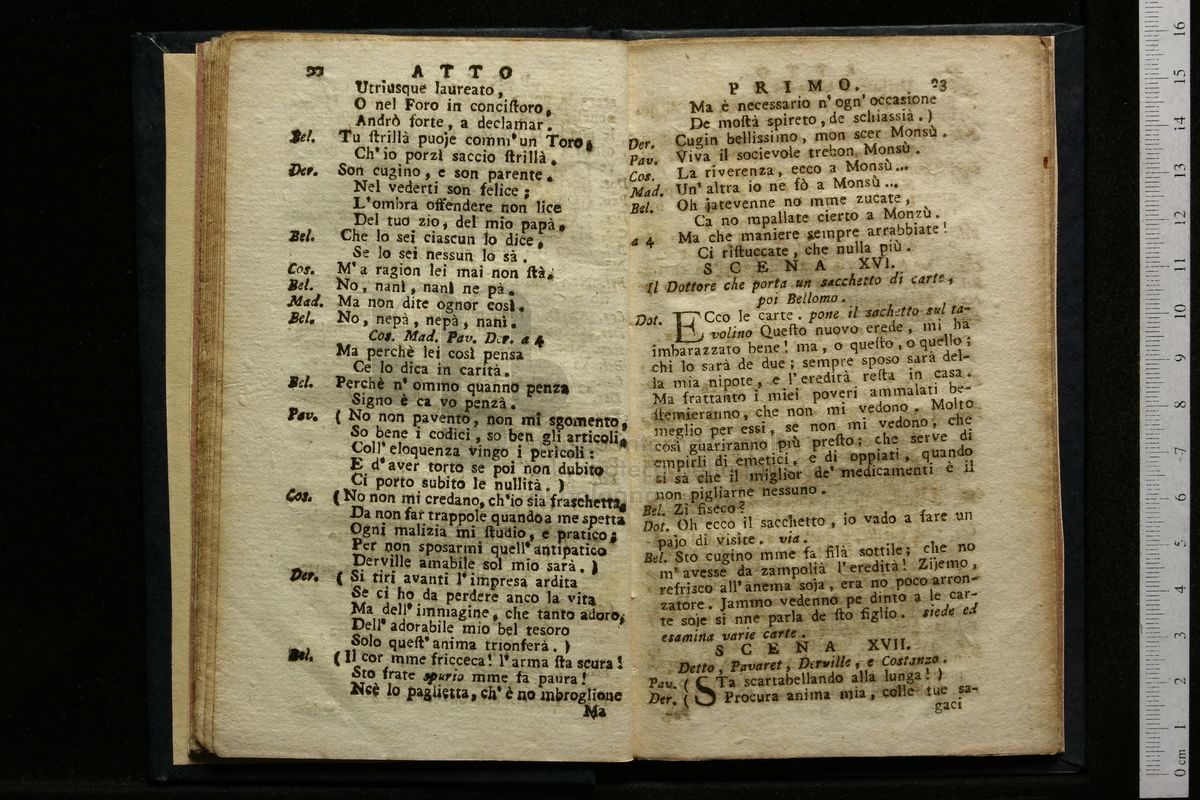 22 ATTO
Utriusque laureato,
O nel Foro in conciſtoro,
Andrò forte, a declamar.
Bel. Tu ſtrillà puoje comm'un Toro,
Ch'io porzì saccio ſtrillà.
Der. Son cugino, e son parente.
Nel vederti son felice;
L'ombra offendere non lice
Del tuo zio, del mio papà.
Bel. Che lo sei ciascun lo dice,
Se lo sei nessun lo sà.
Cos. M'a ragion lei mai non ſtà.
Bel. No, nanì, nanì ne pà.
Mad. Ma non dite ognor così.
Bel. No, nepà, nepà, nanì.
Cos. Mad. Pav. Der. a 4
Ma perchè lei così pensa
Ce lo dica in carità.
Bel. Perchè n'ommo quanno penza
Signo è ca vo penzà.
Pav. ( No non pavento, non mi sgomento,
So bene i codici, so ben gli articoli,
Coll'eloquenza vingo i pericoli:
E d'aver torto se poi non dubito
Ci porto subito le nullità. )
Cos. ( No non mi credano, ch'io sia fraschetta,
Da non far trappole quando a me spetta
Ogni malizia mi ſtudio, e pratico;
Per non sposarmi quell'antipatico
Derville amabile sol mio sarà. )
Der. ( Si tiri avanti l'impresa ardita
Se ci ho da perdere anco la vita
Ma dell'immagine, che tanto adoro,
Dell'adorabile mio bel tesoro
Solo queſt'anima trionferà. )
Bel. ( Il cor mme fricceca! l'arma ſta scura!
Sto frate spurio mme fa paura!
Ncè lo paglietta, ch'è no mbroglione
Ma
PRIMO. 23
Ma è necessario n'ogn'occasione
De moſtà spireto, de schiassia. )
Der. Cugin bellissimo, mon scer Monsù.
Pav. Viva il socievole trebon Monsù.
Cos. La riverenza, ecco a Monsù...
Mad. Un'altra io ne fò a Monsù...
Bel. Oh jatevenne no mme zucate,
Ca no mpallate cierto a Monzù.
a 4 Ma che maniere sempre arrabbiate!
Ci riſtuccate, che nulla più.
SCENA XVI.
Il Dottore che porta un sacchetto di carte,
poi Bellomo.
Dot. ECco le carte. pone il sachetto sul ta-
volino Queſto nuovo erede, mi ha
imbarazzato bene! ma, o queſto, o quello;
chi lo sarà de due; sempre sposo sarà del-
la mia nipote, e l'eredità reſta in casa.
Ma frattanto i miei poveri ammalati be-
ſtemieranno, che non mi vedono. Molto
meglio per essi, se non mi vedono, che
così guariranno più preſto; che serve di
empirli di emetici, e di oppiati, quando
si sà che il miglior de' medicamenti è il
non pigliarne nessuno.
Bel. Zi fiseco?
Dot. Oh ecco il sacchetto, io vado a fare un
pajo di visite. via.
Bel. Sto cugino mme fa filà sottile; che no
m'avesse da zampolià l'eredità! Zijemo,
refrisco all'anema soja, era no poco arron-
zatore. Jammo vedenno pe dinto a le car-
te soje si nne parla de ſto figlio. siede ed
esamina varie carte.
SCENA XVII.
Detto, Pavaret, Derville, e Costanzo.
Pav. ( STa scartabellando alla lunga! )
Der. ( Procura anima mia, colle tue sa-
gaci
16
15
14
13
12
11
10
9
8
7
6
5
4
3
2
1
0 cm